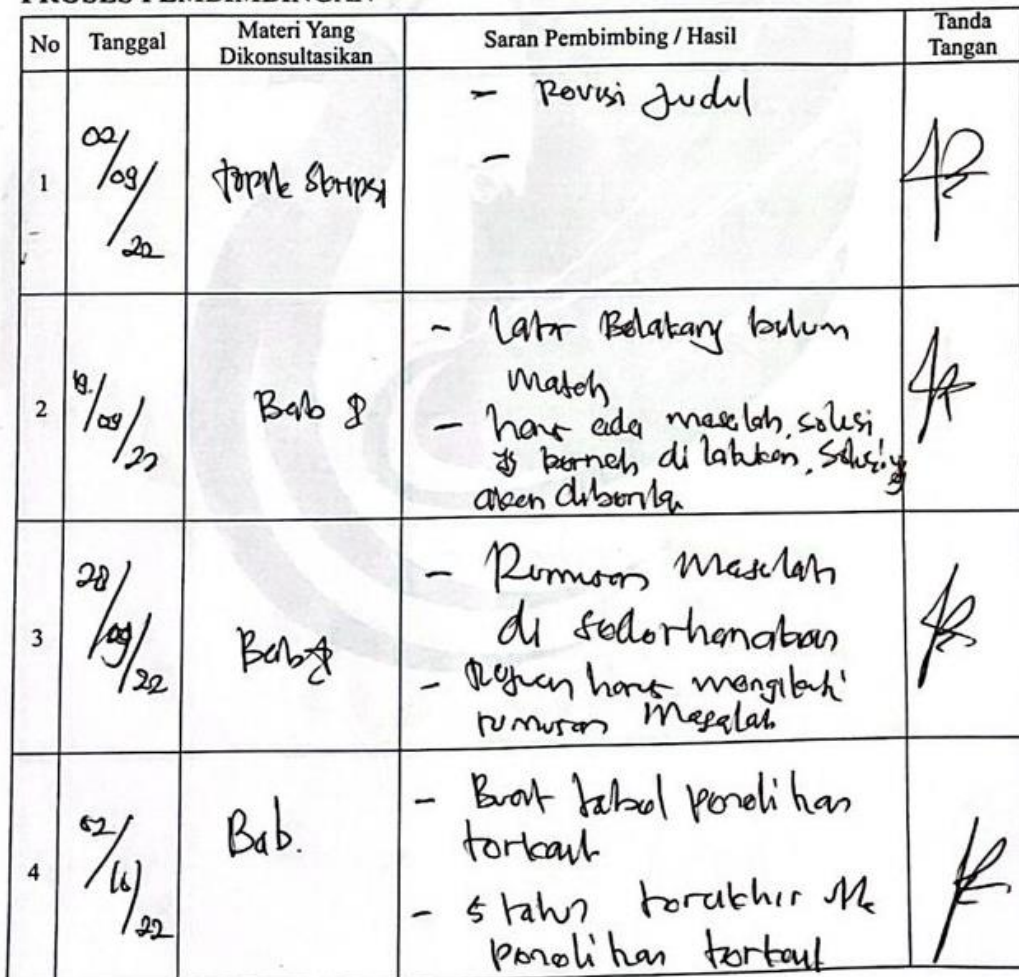 PROSES PEMBIMBINGAN
No
Tanggal
Materi Yang
Dikonsultasikan
Saran Pembimbing / Hasil
Tanda
Tangan
1
02/09/22
topik skripsi
- Revisi Judul
-
2
19/09/22
Bab
- Latar Belakang belum
match
- harus ada masalah, solusi
yg pernah di lakukan, solusi yg
akan diberika
3
28/09/22
Bab
- Rumusan Masalah
di sederhanakan
- Tujuan harus mengikuti
rumusan Masalah
4
02/ /22
Bab.
- Buat tabel penelitian
terkait
- 5 tahun terakhir
penelitian terkait